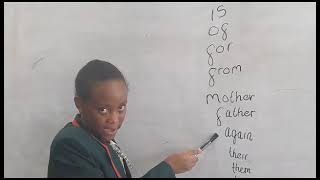 is
of
for
from
mother
father
again
their
them